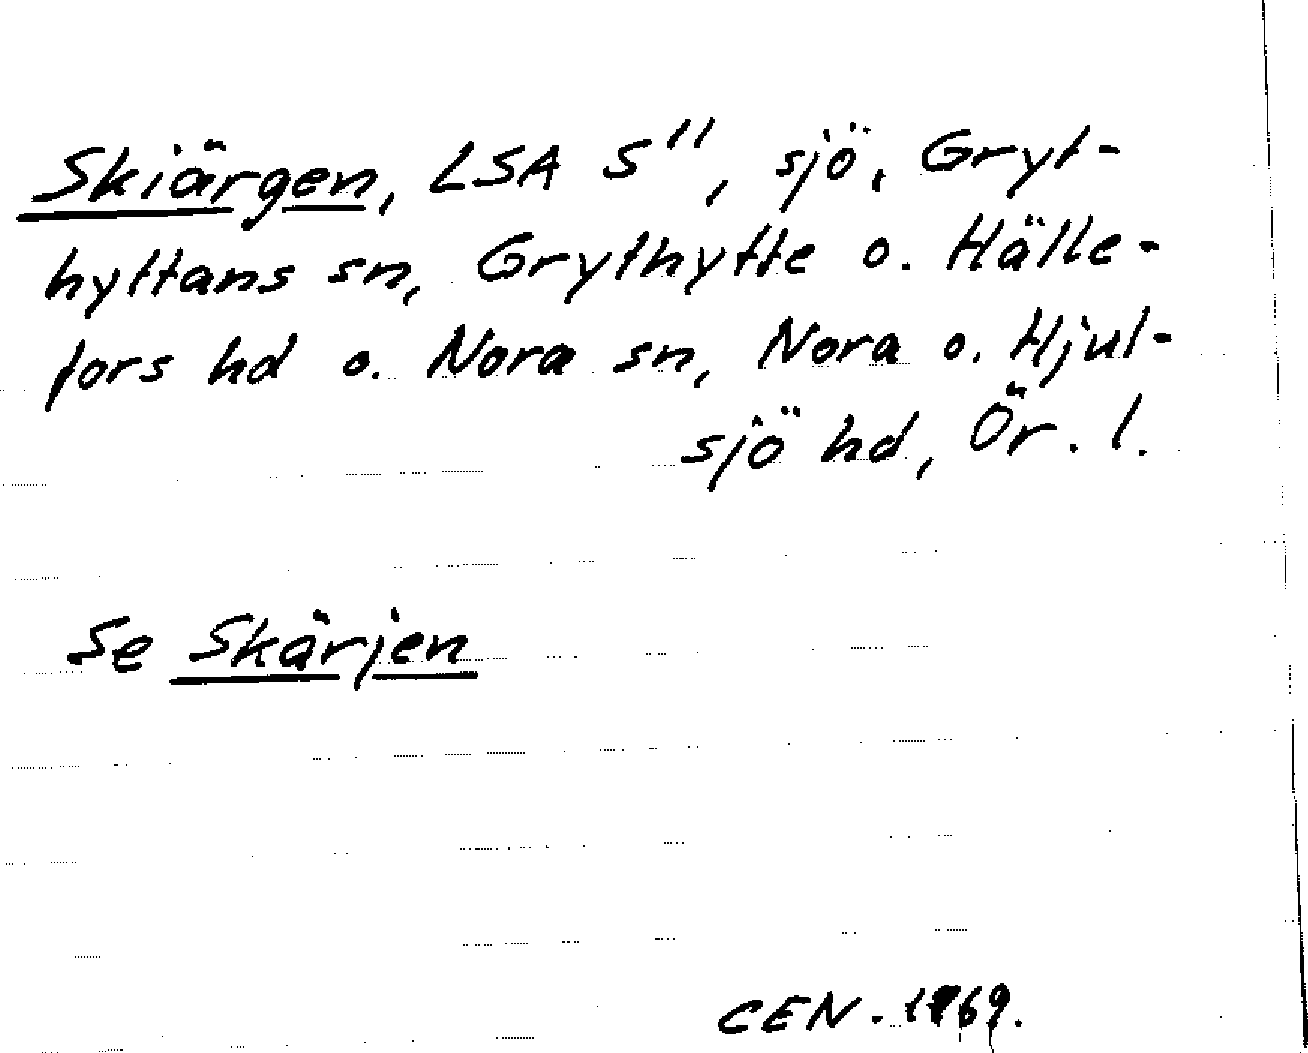 Skiärgen, LSA S", sjö, Gryt-
hyttans sn, Grythytte o. Hälle-
fors hd o. Nora sn, Nora o. Hjul-
sjö hd, Ör. l.
Se Skärjen
CEN. 1969.